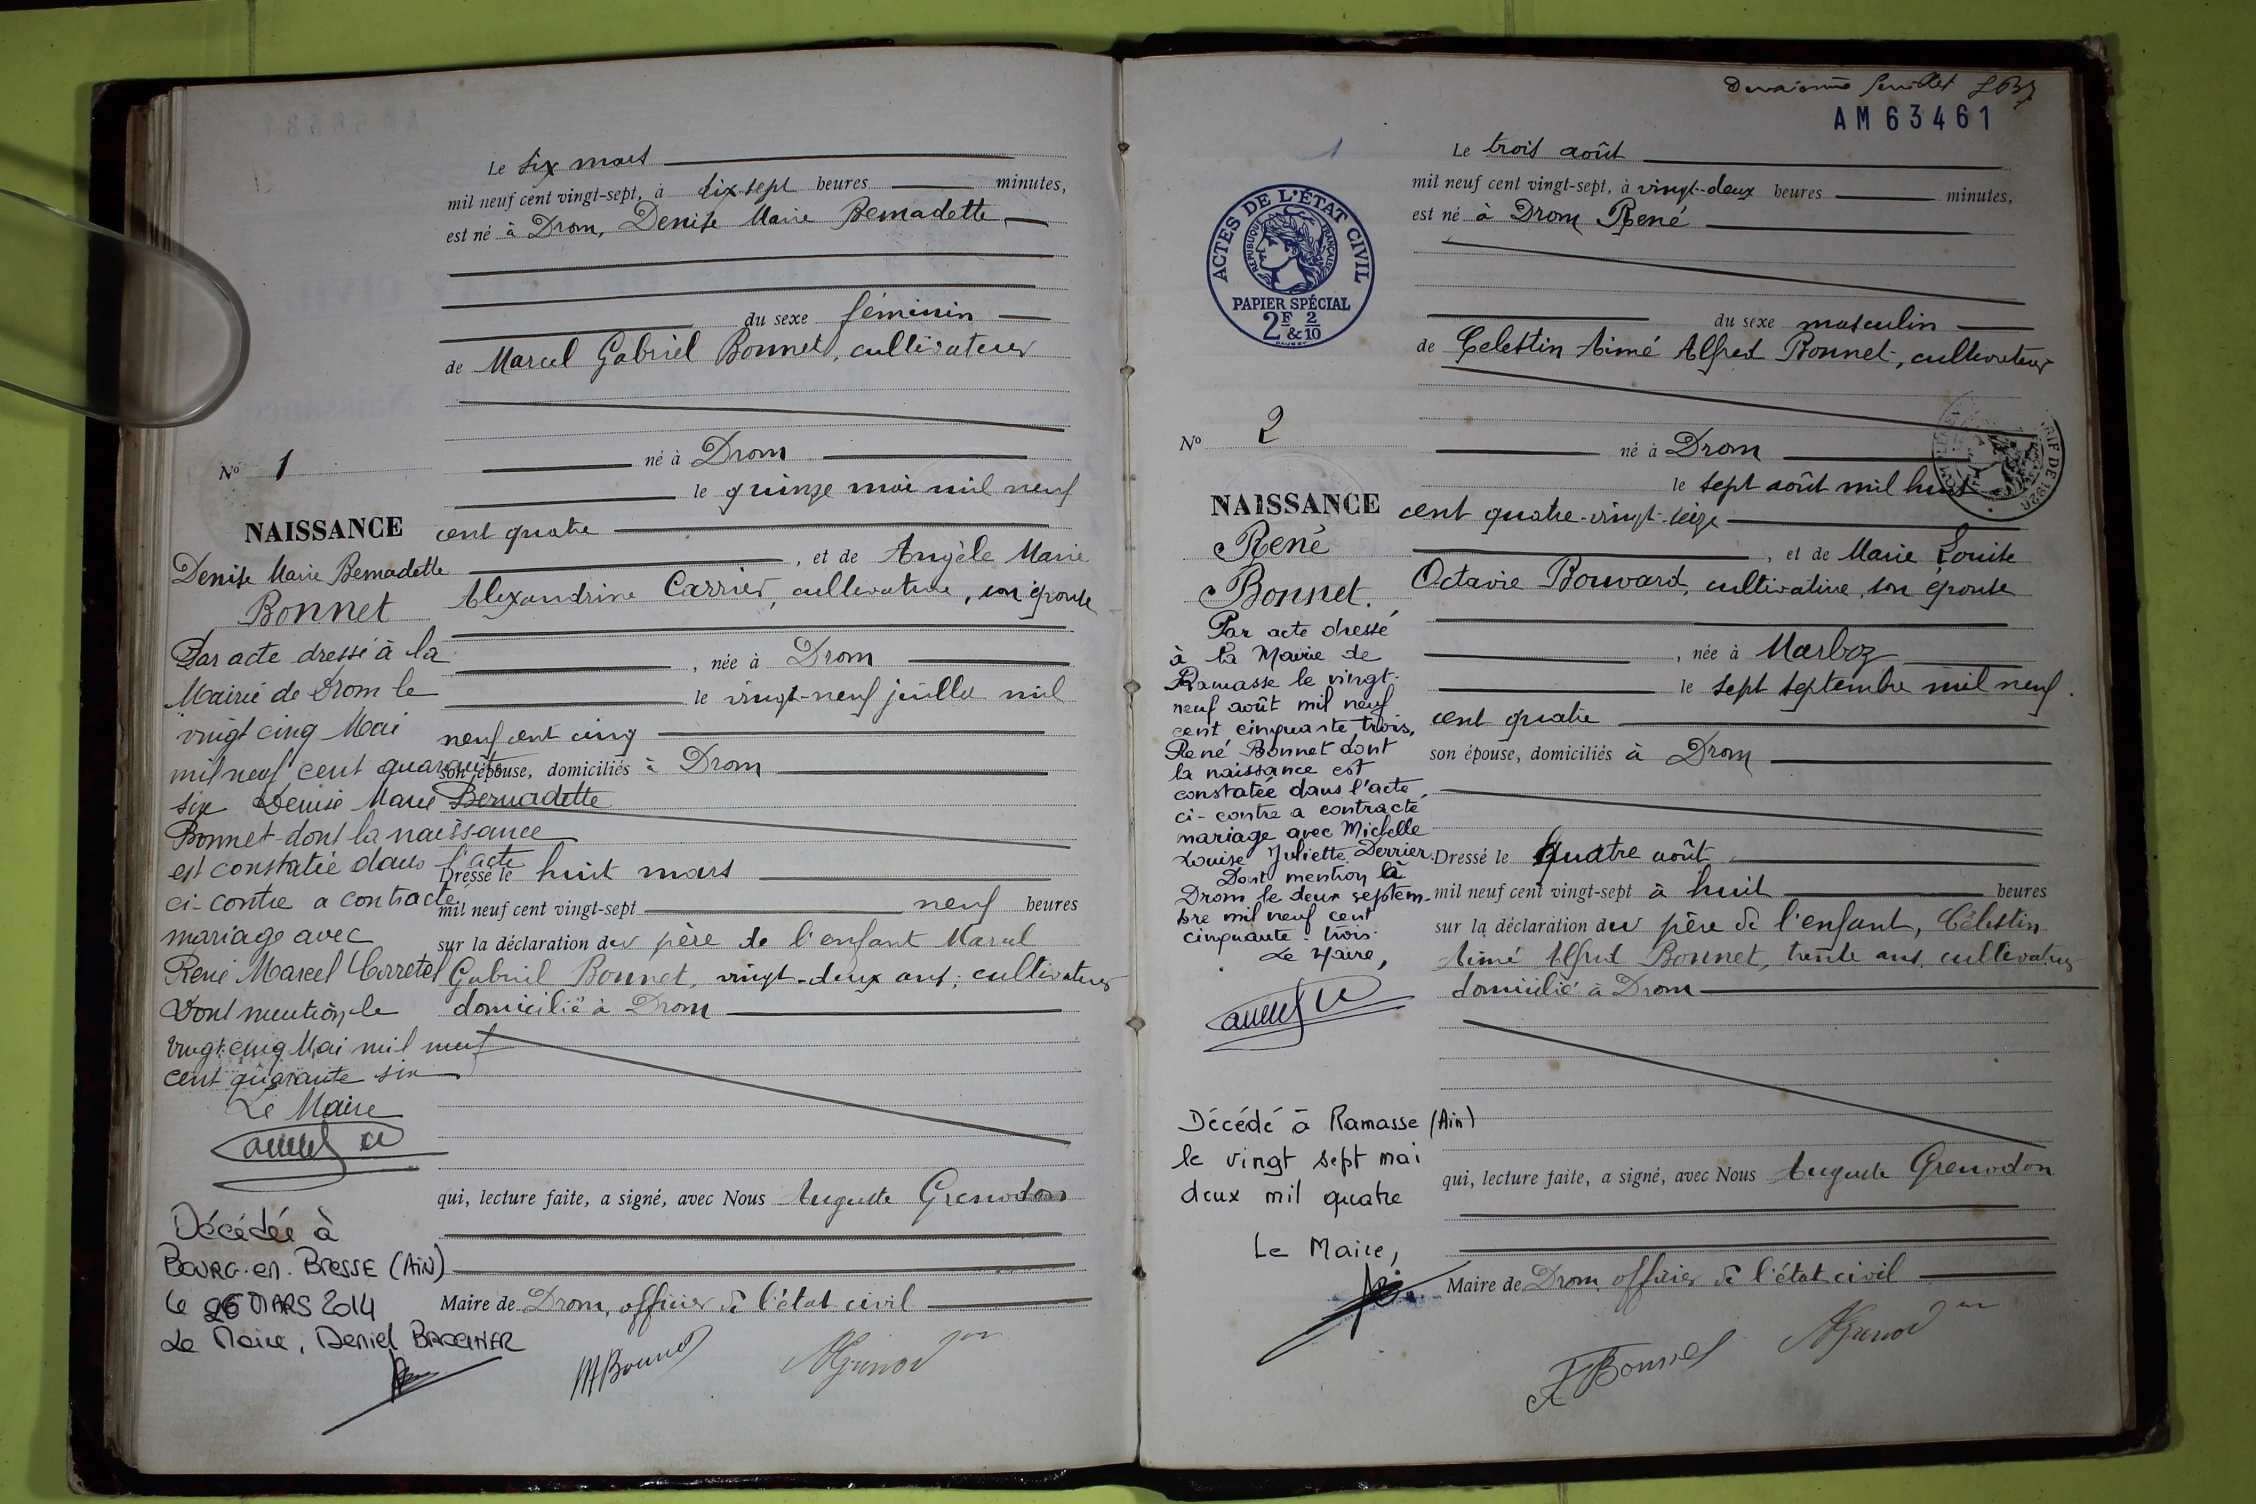 Le six mars
mil neuf cent vingt-sept, à dix-sept heures minutes,
est né à Drom, Denise Marie Bernadette
du sexe féminin
de Marcel Gabriel Bonnet, cultivateur
né à Drom
le quinze mai mil neuf
cent quatre
, et de Angèle Marie
Alexandrine Carrier, cultivatrice, son épouse
, née à Drom
le vingt-neuf juillet mil
neuf cent cinq
son épouse, domiciliés à Drom
Dressé le huit mars
mil neuf cent vingt-sept neuf heures
sur la déclaration du père de l'enfant Marcel
Gabriel Bonnet, vingt-deux ans, cultivateur
domicilié à Drom
qui, lecture faite, a signé, avec Nous Auguste Grenodon
Maire de Drom, officier de l'état civil
MBonnet
No 1
NAISSANCE
Denise Marie Bernadette
Bonnet
Par acte dressé à la
Mairie de Drom le
vingt cinq Mai
mil neuf cent quarante
six Denise Marie Bernadette
Bonnet dont la naissance
est constatée dans l'acte
ci-contre a contracté
mariage avec
René Marcel
Dont mention le
vingt-cinq Mai mil neuf
cent quarante six
Le Maire
Décédée à
BOURG-en-BRESSE (AIN)
le 26 MARS 2014
Le Maire, Daniel
feuillet
AM63461
ACTES DE L'ÉTAT CIVIL
RÉPUBLIQUE FRANÇAISE
PAPIER SPÉCIAL
2F & 2/10
Le trois août
mil neuf cent vingt-sept, à vingt-deux heures minutes,
est né à Drom René
du sexe masculin
de Célestin Aimé Alfred Bonnet, cultivateur
né à Drom
le sept août mil huit
cent quatre-vingt-seize
, et de Marie Louise
Octavie Bouvard, cultivatrice, son épouse
, née à Marboz
le sept septembre mil neuf
cent quatre
son épouse, domiciliés à Drom
Dressé le quatre août
mil neuf cent vingt-sept à huit heures
sur la déclaration du père de l'enfant, Célestin
Aimé Alfred Bonnet, trente ans, cultivateur
domicilié à Drom
qui, lecture faite, a signé, avec Nous Auguste Grenodon
Maire de Drom, officier de l'état civil
Bonnet
No 2
NAISSANCE
René
Bonnet.
Par acte dressé
à la Mairie de
Ramasse le vingt-
neuf août mil neuf
cent cinquante trois,
René Bonnet dont
la naissance est
constatée dans l'acte
ci-contre a contracté
mariage avec Michelle
Louise Juliette Derrier.
Dont mention à
Drom le deux septem-
bre mil neuf cent
cinquante-trois.
Le Maire,
Décédé à Ramasse (Ain)
le vingt sept mai
deux mil quatre
Le Maire,